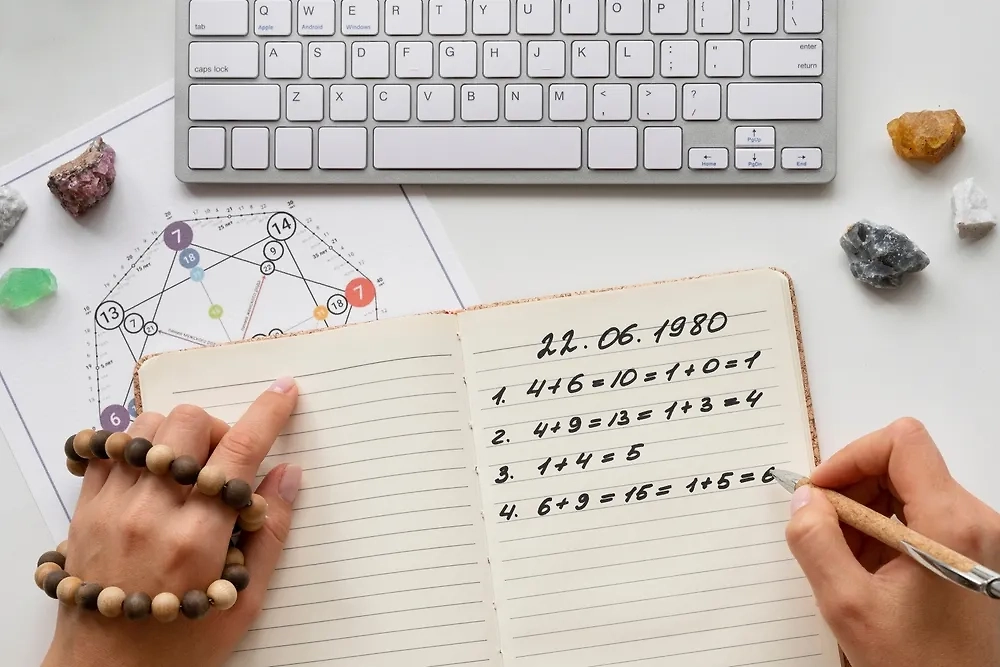 tab Q W E R T Y U I O P { [ } ] | \
Apple Android Windows
caps lock A S D F G H J K L : ; " ' enter return
Z X C V B N M < , > . ? /
PgUp
Home PgDn End
7 14
18 9
22
13 7 21
18 7
6
22.06.1980
1. 4+6=10=1+0=1
2. 4+9=13=1+3=4
3. 1+4=5
4. 6+9=15=1+5=6